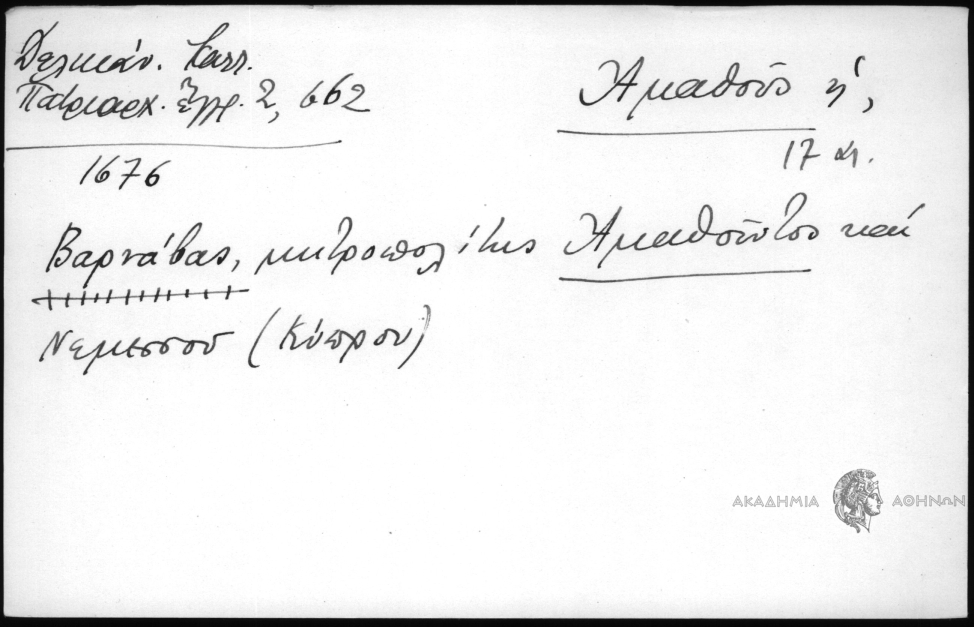 Δελικάν. Καλλ.
Πατριαρχ. Ἔγγρ. 2, 662
Ἀμαθοῦς ἡ,
17 αι.
1676
Βαρνάβας, μητροπολίτης Ἀμαθοῦντος καὶ
Νεμεσσοῦ (Κύπρου)
ΑΚΑΔΗΜΙΑ ΑΘΗΝΩΝ